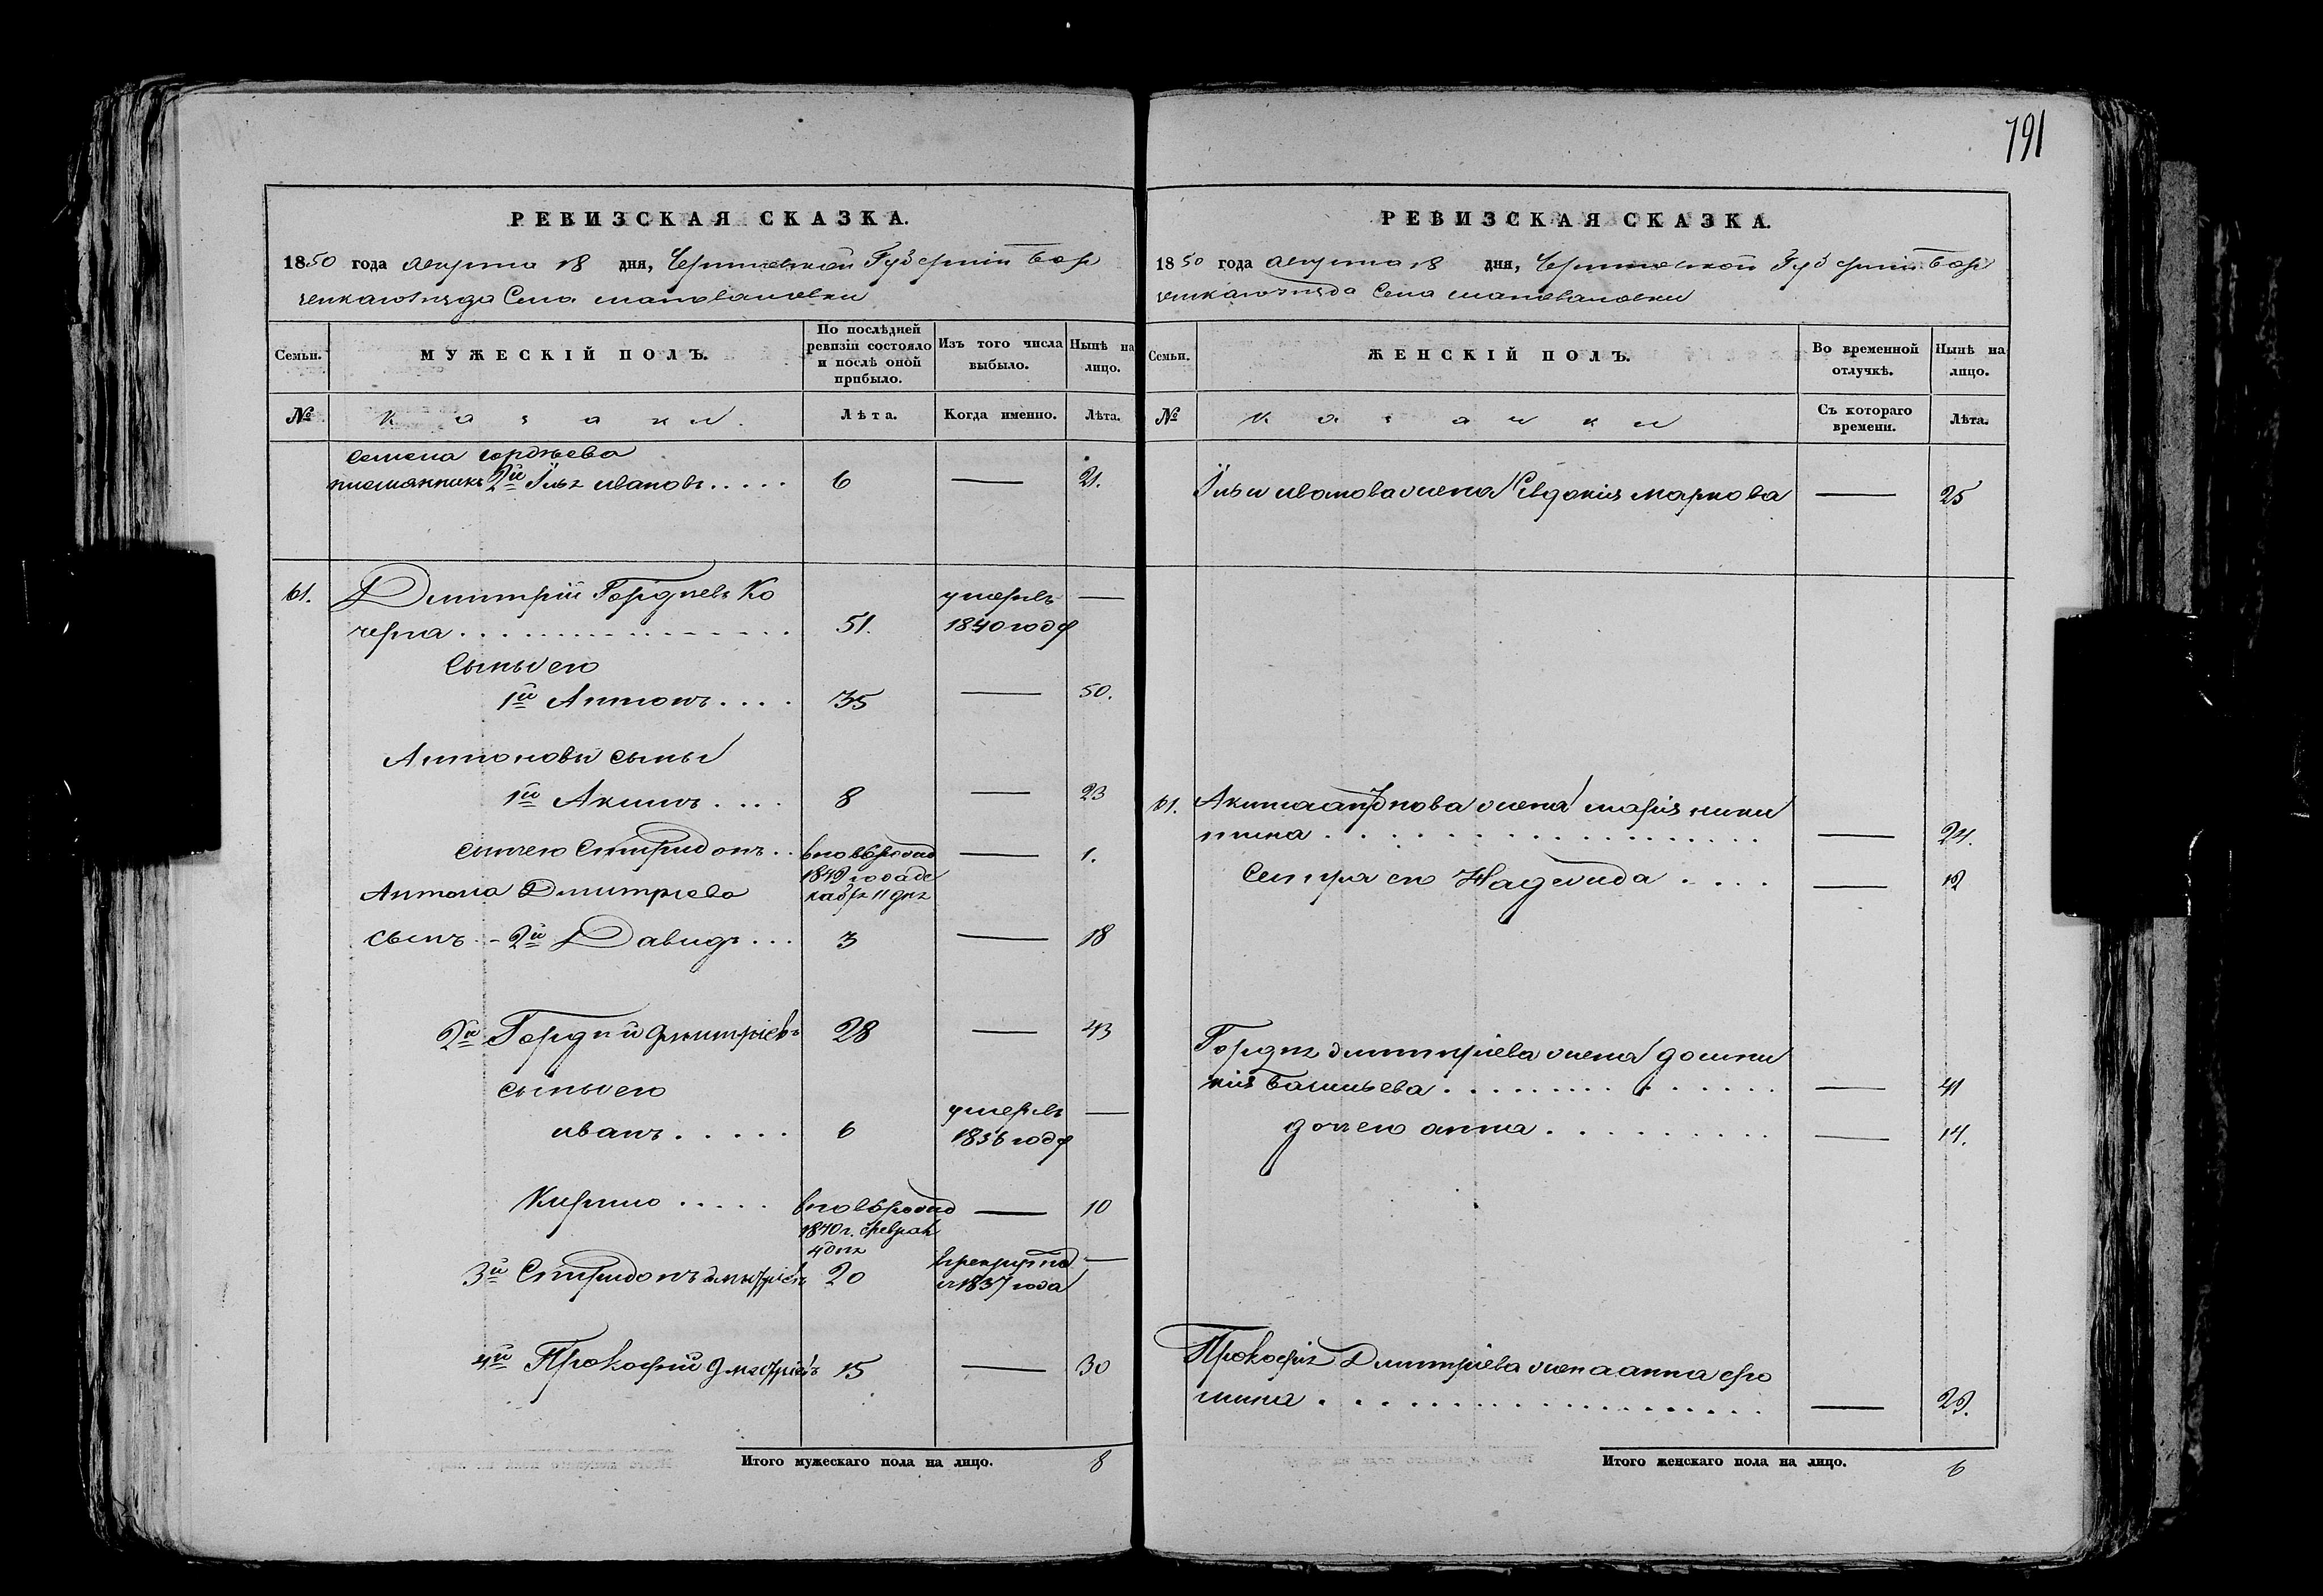 191
РЕВИЗСКАЯ СКАЗКА.
1850 года августа 18 дня, Черниговской Губерніи Бор
зенскаго уезда Села
Семьи.
МУЖЕСКІЙ ПОЛЪ.
По послѣдней ревизіи состояло и послѣ оной прибыло.
Изъ того числа выбыло.
Нынѣ на лицо.
№
казаки.
Лѣта.
Когда именно.
Лѣта.
Семена Гордѣева
племянникъ 2й Илья Ивановъ..... 6 — 21.
61. Дмитрій Гордѣевъ Ко умеръ —
черга 51. 1840 году
Сыны его
1й Антонъ.... 35 — 50.
Антоновы сыны
1й Акимъ.... 8 — 23
сынъ его Спиридонъ.. вновь рожд — 1.
1849 года де
Антона Дмитріева кабря 11 дня
сынъ - 2й Давидъ... 3 — 18
2й Гордѣй Дмитріевъ 28 — 43
сыны его
Иванъ..... 6 умеръ —
1836 году
Кирило..... вновь рожд — 10
1840 г. феврал
4 дня
3й Спиридонъ Дмитріевъ 20 в рекруты —
1837 года
4й Прокофій Дмитріевъ 15 — 30
Итого мужескаго пола на лицо. 8
РЕВИЗСКАЯ СКАЗКА.
1850 года августа 18 дня, Черниговской Губерніи Бор
зенскаго уезда Села
Семьи.
ЖЕНСКІЙ ПОЛЪ.
Во временной отлучкѣ.
Нынѣ на лицо.
№
казачки
Съ котораго времени.
Лѣта.
Ильи Иванова жена Евдокія Маркова — 25
61. Акима Антонова жена Марія Ники
тина — 24.
Сестра его Надежда.... — 12
Гордѣя Дмитріева жена Домни
кія Васильева — 41
дочь его Анна — 14.
Прокофія Дмитріева жена Анна Фо
мина — 29.
Итого женскаго пола на лицо. 6